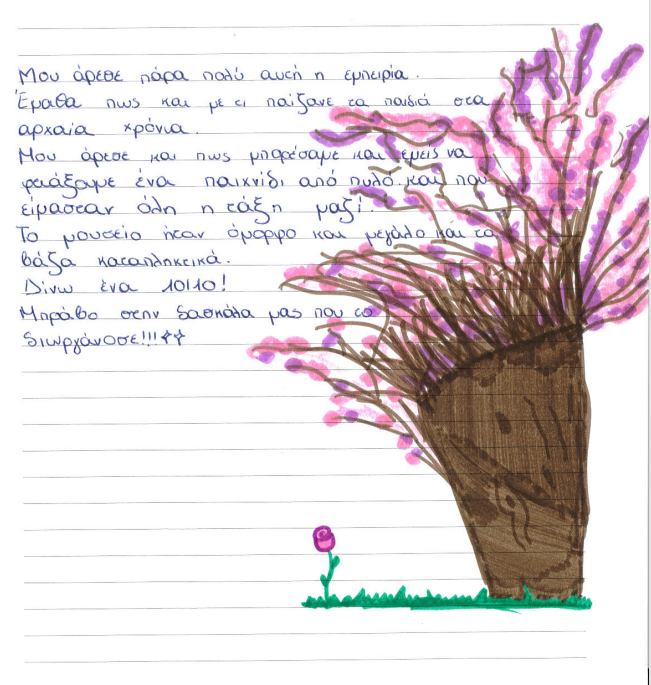 Μου άρεσε πάρα πολύ αυτή η εμπειρία.
Έμαθα πως και με τι παίζανε τα παιδιά στα
αρχαία χρόνια.
Μου άρεσε και πως μπορέσαμε και εμείς να
φτιάξαμε ένα παιχνίδι από πυλό και που
είμασταν όλη η τάξη μαζί.
Το μουσείο ήταν όμορφο και μεγάλο και τα
βάζα καταπληκτικά.
Δίνω ένα 10/10!
Μπράβο στην δασκάλα μας που το
διωργάνοσε!!!